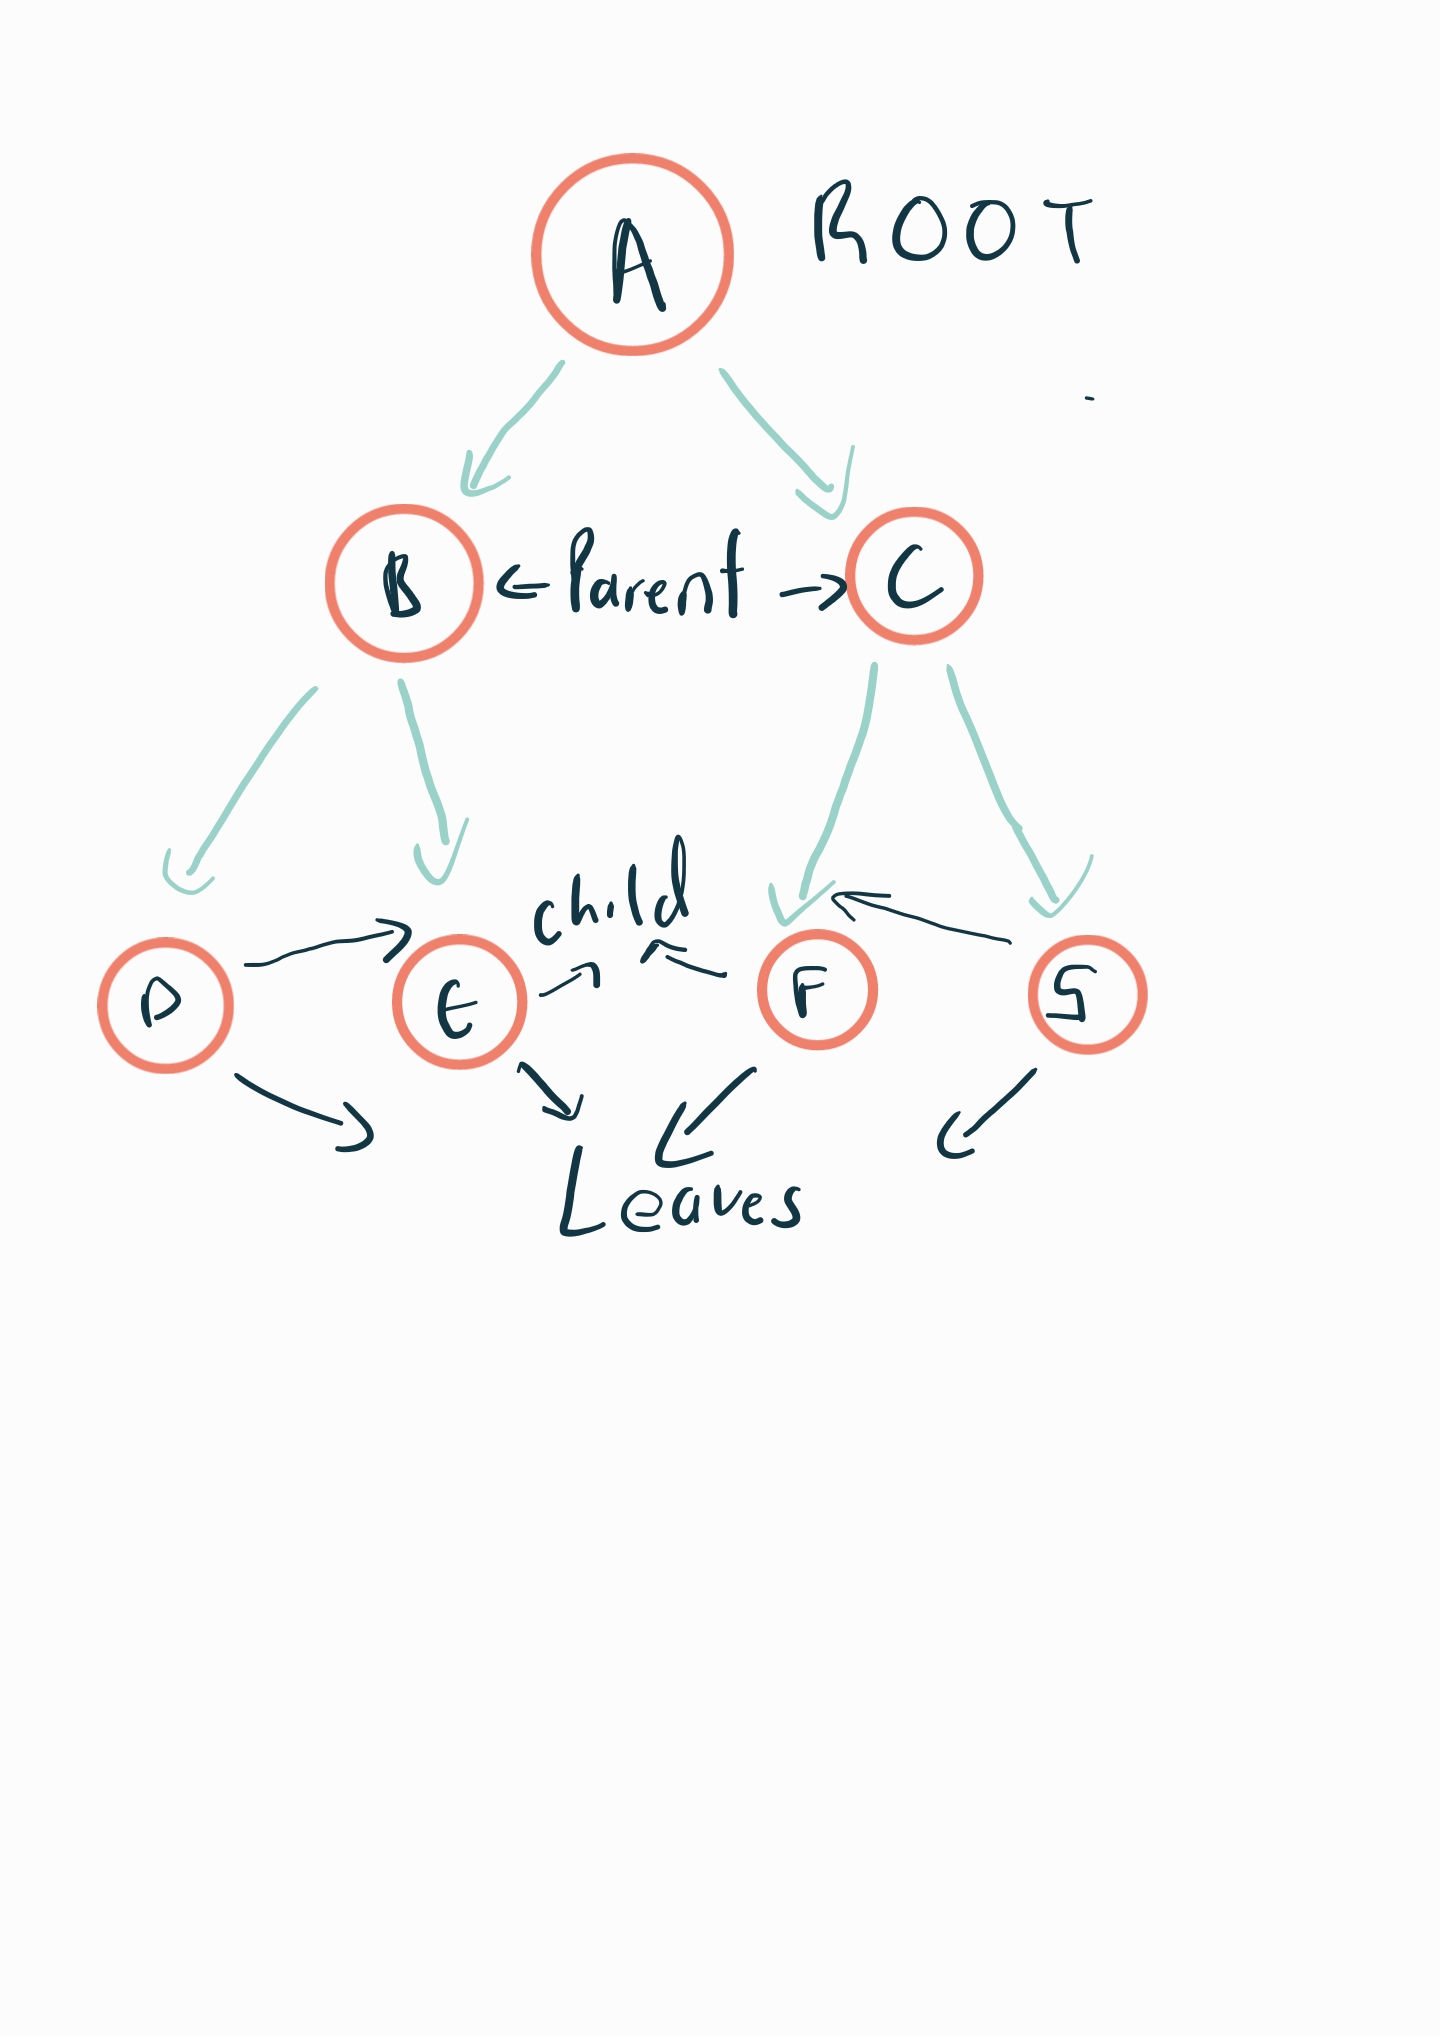 A ROOT
B Parent C
child
D E F G
Leaves